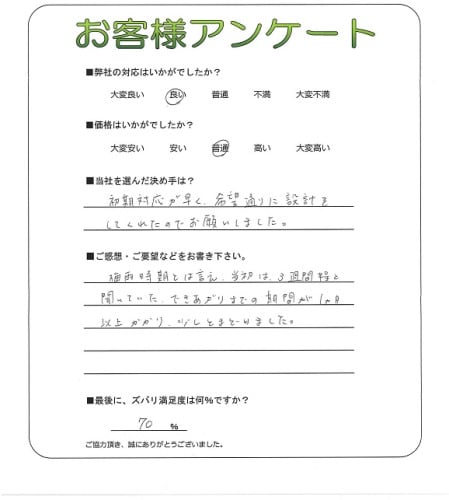 お客様アンケート
■弊社の対応はいかがでしたか?
大変良い 良い 普通 不満 大変不満
■価格はいかがでしたか?
大変安い 安い 普通 高い 大変高い
■当社を選んだ決め手は?
初期対応が早く、希望通りに設計を
してくれたのでお願いしました。
■ご感想・ご要望などをお書き下さい。
梅雨時期とは言え、当初は、3週間程と
聞いていた、できあがりまでの期間が1ヶ月
以上かかり、少しとまどいました。
■最後に、ズバリ満足度は何%ですか?
70 %
ご協力頂き、誠にありがとうございました。